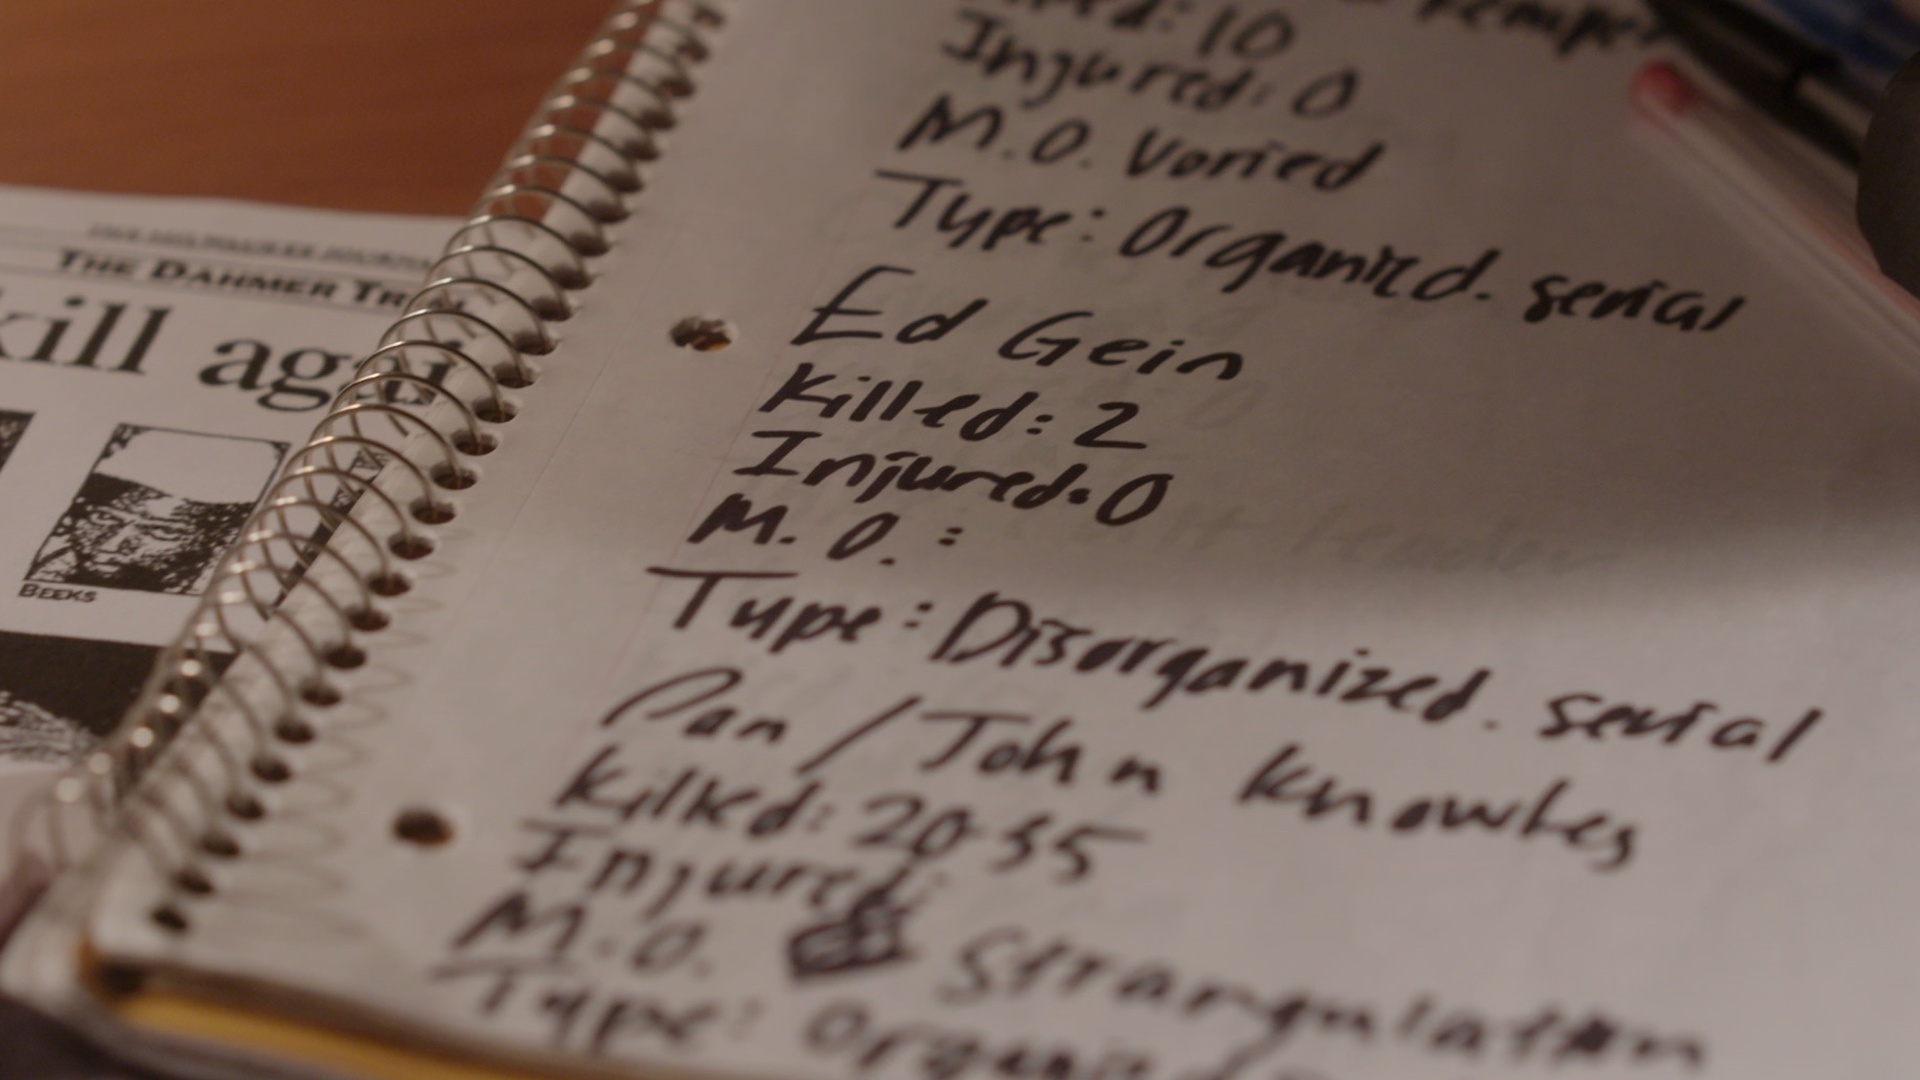 THE DAHMER TRIAL
kill again
BEEKS
Kemper
Killed: 10
Injured: 0
M.O. Varied
Type: Organized. serial
Ed Gein
Killed: 2
Injured: 0
M.O.:
Type: Disorganized. serial
Pan / John Knowles
Killed: 20-35
Injured:
M.O. Strangulation
Type: